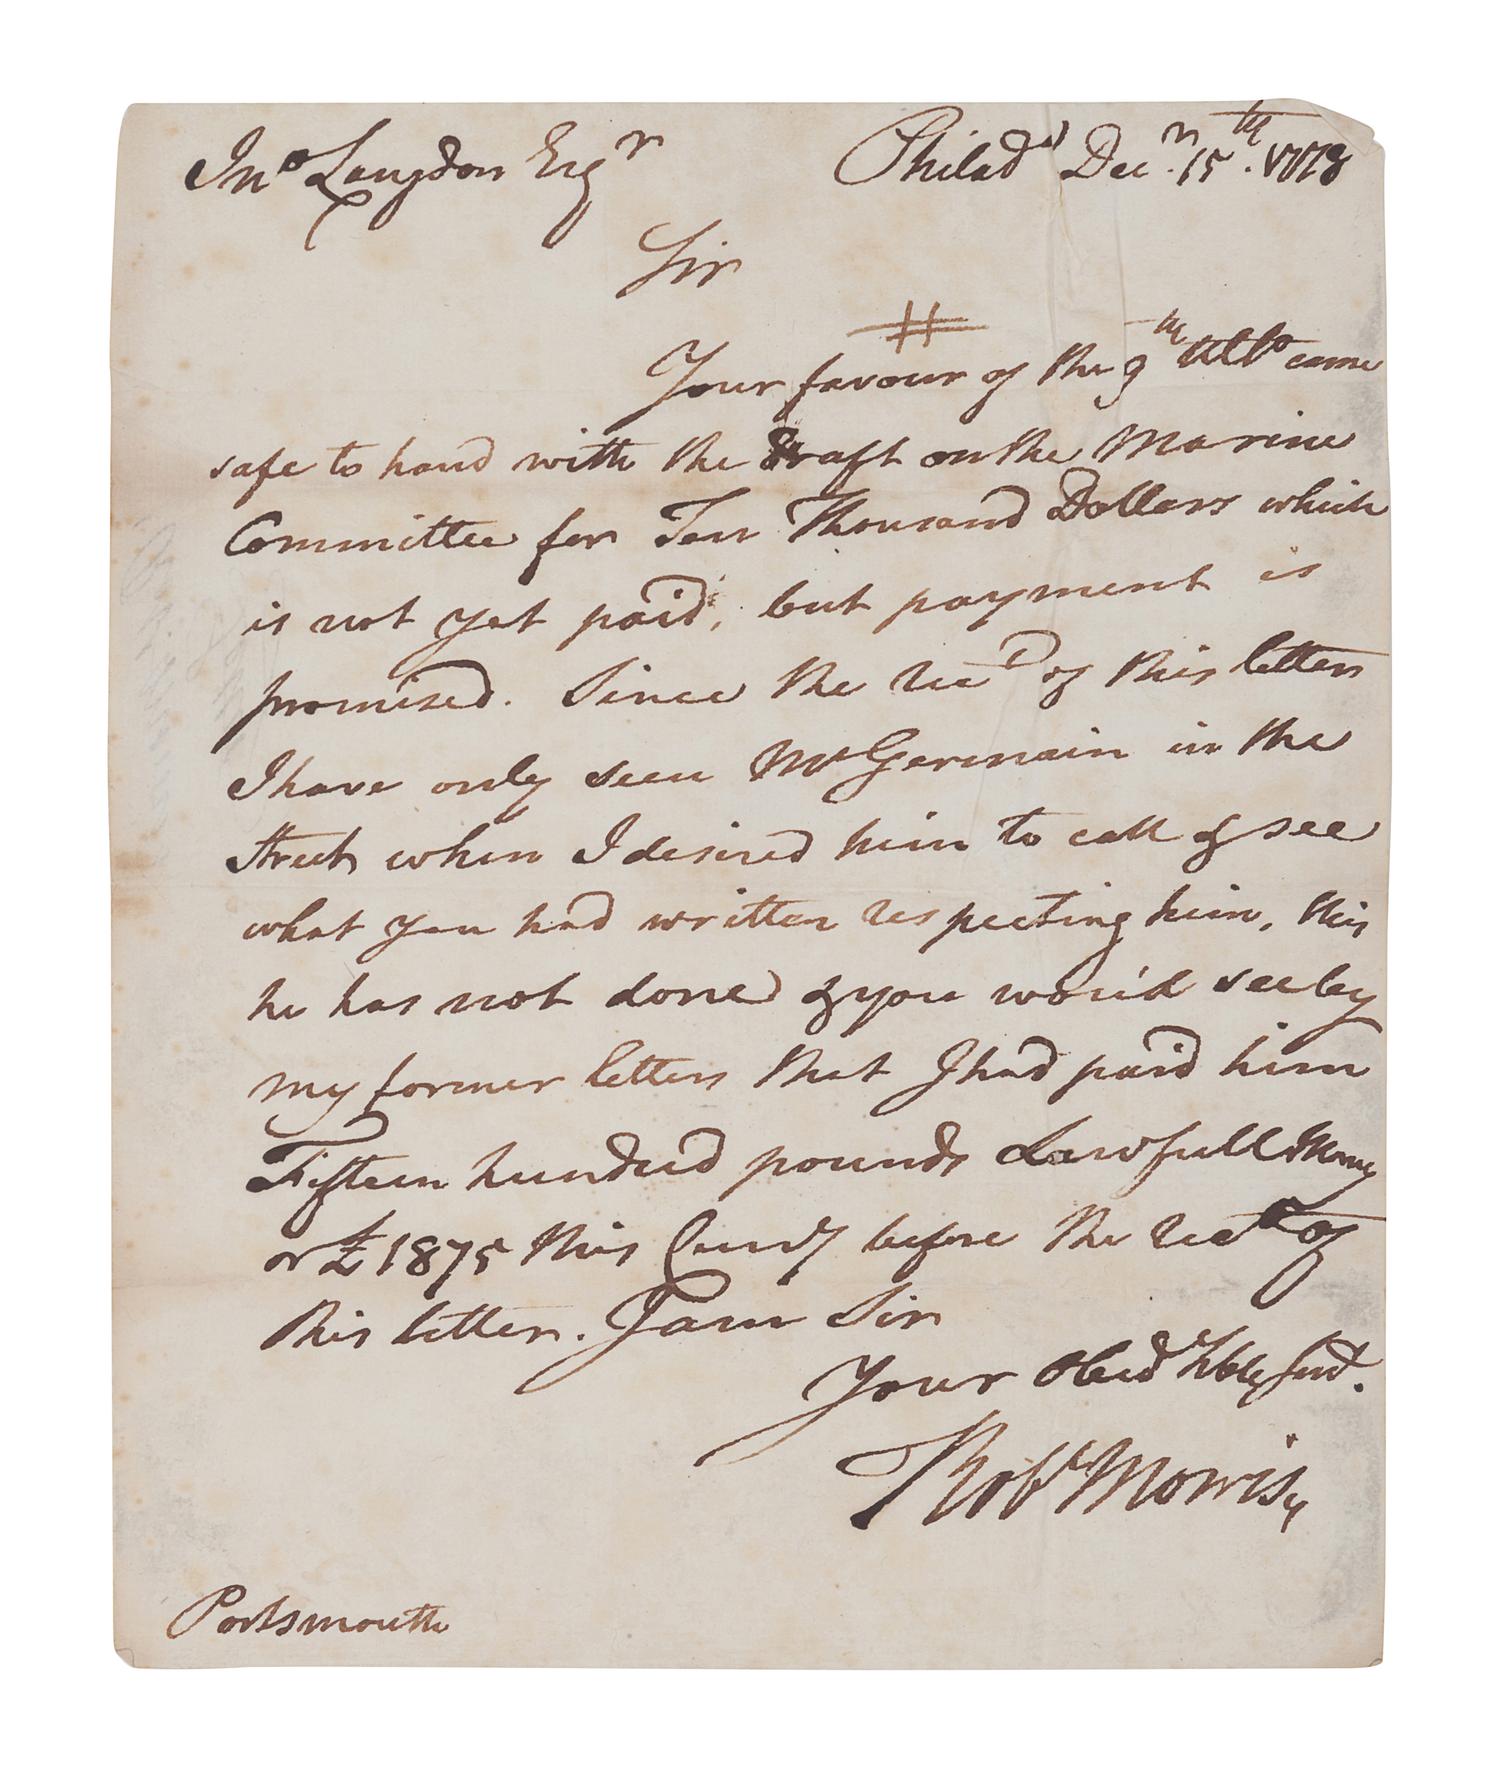 Jno Langdon Esqr Philada Decr 15th. 1778
Sir
Your favour of the 9th Ulto came
safe to hand with the draft on the Marine
Committee for Ten Thousand Dollars which
is not yet paid, but payment is
promised. Since the recd of this letter
I have only seen Mr Germain in the
Street when I desired him to call & see
what you had written respecting him, this
he has not done & you wou'd see by
my former letters that I had paid him
Fifteen hundred pounds Lawfull Money
or £1875 this Curry before the rect of
this letter. I am Sir
Your Obedt hble servt.
Robt Morris
Portsmouth